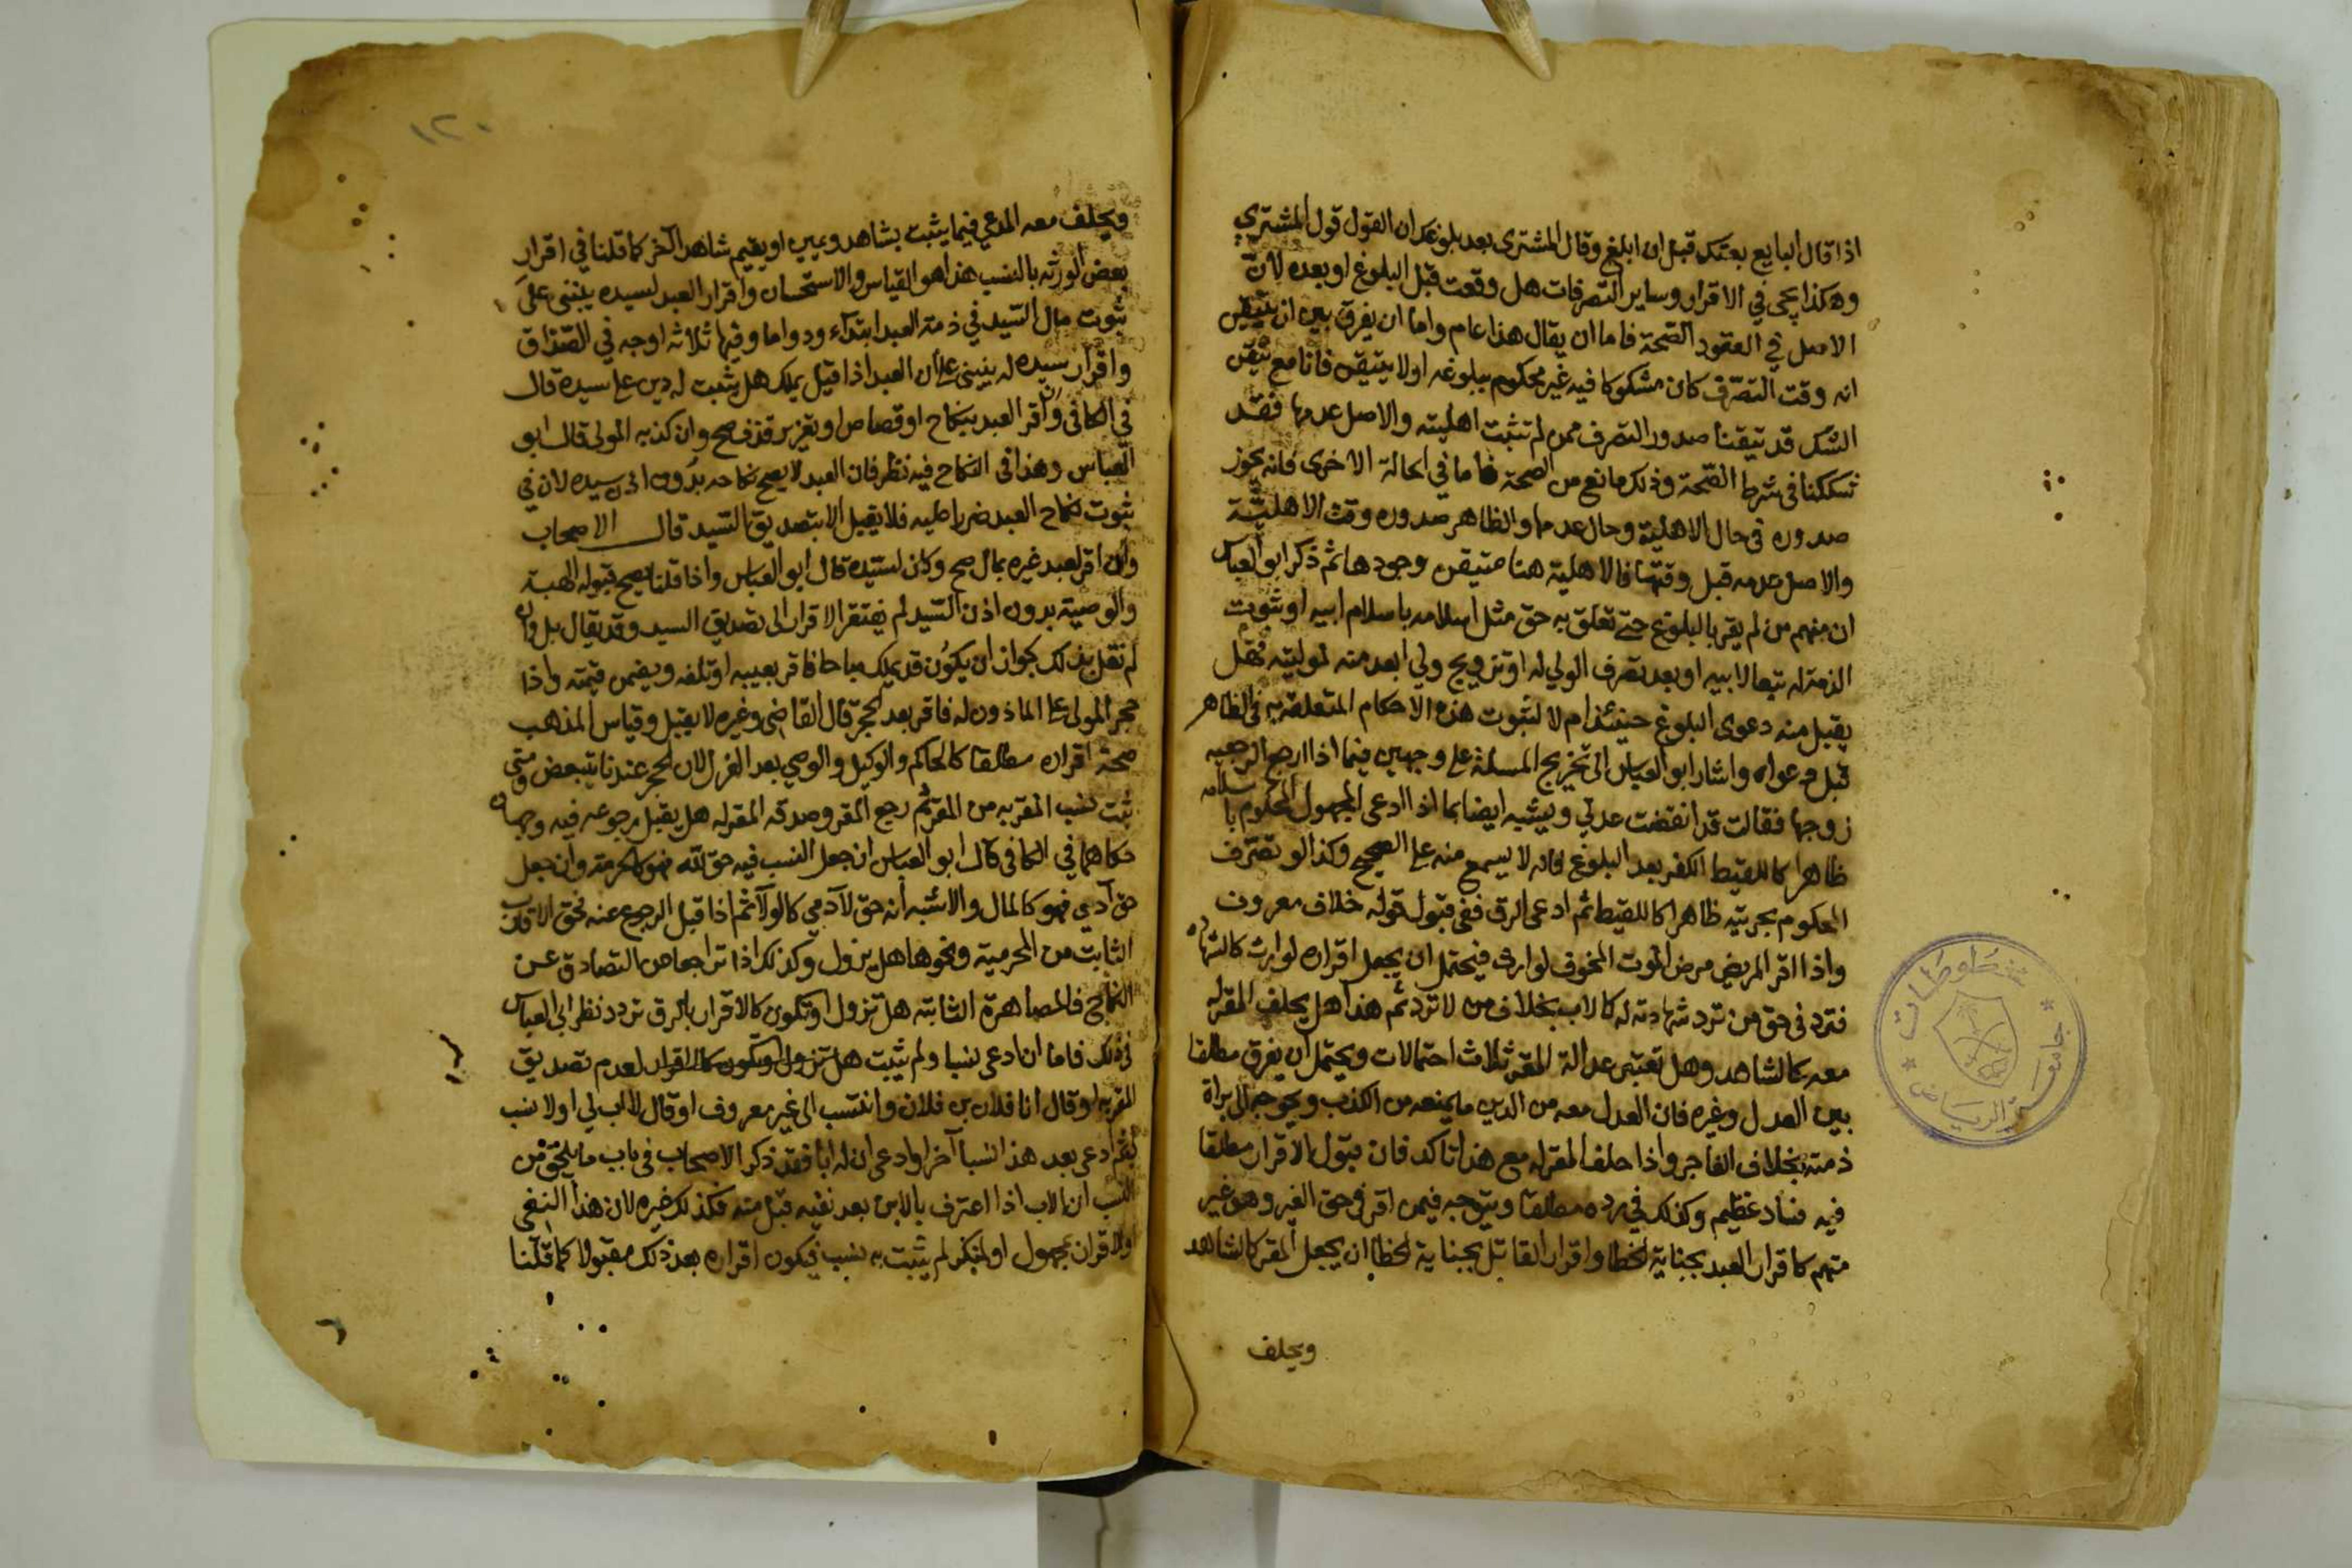 اذا قال البايع بعتك قبل ان ابلغ وقال المشتري بعد بلوغك ان القول قول المشتري
وهكذا يجي في الاقرار وساير التصرفات هل وقعت قبل البلوغ او بعده لان
الاصل في العقود الصحة فاما ان يقال هذا عام واما ان يفرق بين ان يتيقن
انه وقت التصرف كان مشكوكا فيه غير محكوم ببلوغه او لا يتيقن فانا مع تيقن
الشك قد تيقنا صدور التصرف ممن لم تثبت اهليته والاصل عدمها فقد
شككنا في شرط الصحة وذلك مانع من الصحة فاما في الحالة الاخرى فانه يجوز
صدوره في حال الاهلية وحال عدمها والظاهر صدوره وقت الاهلية
والاصل عدمه قبل وقتها فالاهلية هنا متيقن وجودها ثم ذكر ابو العباس
ان منهم من لم يقر بالبلوغ حتى تعلق به حق مثل اسلامه باسلام ابيه او ثبوت
الذمة له تبعا لابيه او بعد تصرف الولي له او تزويج ولي ابعد منه لموليته فهل
يقبل منه دعوى البلوغ حينئذ ام لا لثبوت هذه الاحكام المتعلقة به في الظاهر
قبل دعواه واشار ابو العباس الى تخريج المسئلة على وجهين فيما اذا ارجع الرجعية
زوجها فقالت قد انقضت عدتي ويشبه ايضا بما اذا ادعى المجهول المحكوم باسلامه
ظاهرا كاللقيط الكفر بعد البلوغ فانه لا يسمع منه على الصحيح وكذا لو تصرف
المحكوم بحريته ظاهرا كاللقيط ثم ادعى الرق ففي قبول قوله خلاف معروف
واذا اقر المريض مرض الموت المخوف لوارث فيحتمل ان يجعل اقراره لوارث كالشهاده
فترد في حق من ترد شهادته له كالاب بخلاف من لا ترد ثم هذا هل يحلف المقر له
معه كالشاهد وهل تعتبر عدالة المقر ثلاث احتمالات ويحتمل ان يفرق مطلقا
بين العدل وغيره فان العدل معه من الدين ما يمنعه من الكذب ويحوجه الى براة
ذمته بخلاف الفاجر واذا حلف المقر له مع هذا تاكد فان قبول الاقرار مطلقا
فيه فساد عظيم وكذلك في رده مطلقا ويتوجه فيمن اقر في حق الغير وهو غير
متهم كاقرار العبد بجناية الخطا واقرار القاتل بجناية الخطا ان يجعل المقر كالشاهد
ويحلف
١٢٠
ويحلف معه المدعي فيما يثبت بشاهد ويمين او يقيم شاهدا آخر كما قلنا في اقرار
بعض الورثه بالنسب هذا هو القياس والاستحسان واقرار العبد لسيده ينبني على
ثبوت مال السيد في ذمة العبد ابتداء ودواما وفيها ثلاثه اوجه في الصداق
واقرار سيده له ينبني على ان العبد اذا قيل يملك هل يثبت له دين على سيده قال
في الكافي وان اقر العبد بنكاح او قصاص او تعزير قذف صح وان كذبه المولى قال ابو
العباس وهذا في النكاح فيه نظر فان العبد لا يصح نكاحه بدون اذن سيده لان في
ثبوت نكاح العبد ضررا عليه فلا يقبل الا بتصديق السيد قال الاصحاب
وان اقر لعبد غيره بمال صح وكان لسيده قال ابو العباس واذا قلنا يصح قبوله الهبة
والوصية بدون اذن السيد لم يفتقر الاقرار الى تصديق السيد وقد يقال بل وان
لم نقل بذلك لجواز ان يكون قد يملك مباحا فاقر بعينه او تلفه ويضمن قيمته واذا
حجر المولى على الماذون له فاقر بعد الحجر قال القاضي وغيره لا يقبل وقياس المذهب
صحة اقراره مطلقا كالحاكم والوكيل والوصي بعد العزل لان الحجر عندنا يتبعض ومتى
ثبت نسب المقر به من المقر ثم رجع المقر وصدقه المقر له هل يقبل رجوعه فيه وجهان
حكاهما في الكافي قال ابو العباس ان جعل النسب فيه حق لله فهو كالحرمة وان جعل
حق آدمي فهو كالمال والاشبه انه حق لآدمي كالولآ ثم اذا قبل الرجوع عنه فحق الاقارب
الثابت من المحرمية ونحوها هل يزول وكذلك اذا تراجعا من التصادق عن
النكاح فالمصاهرة الثابتة هل تزول او تكون كالاقرار بالرق تردد نظر ابي العباس
في ذلك فاما ان ادعى نسبا ولم يثبت هل تزول او تكون كالاقرار لعدم تصديق
المقر به او قال انا فلان بن فلان وانتسب الى غير معروف او قال لا اب لي او لا نسب
ثم ادعى بعد هذا نسبا آخر او ادعى ان له ابا فقد ذكر الاصحاب في باب ما يلحق من
النسب ان الاب اذا اعترف بالابن بعد نفيه قبل منه فكذلك غيره لان هذا النفي
والاقرار بمجهول او لمنكر لم يثبت به نسب فيكون اقراره بعد ذلك مقبولا كما قلنا
مخطوطات
جامعة الرياض